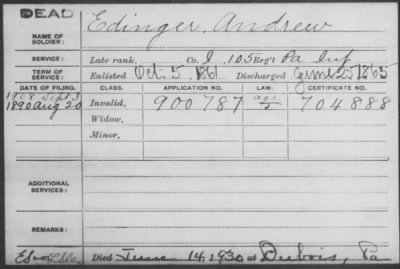 DEAD
NAME OF SOLDIER: Edinger, Andrew
SERVICE: Late rank, Co. I, 105 Reg't Pa Inf
TERM OF SERVICE: Enlisted Oct. 5, 1861 Discharged June 25 1865
DATE OF FILING. CLASS. APPLICATION NO. LAW. CERTIFICATE NO.
1908 Sept 3
1890 Aug 20 Invalid, 900 787 704888
Widow,
Minor,
ADDITIONAL SERVICES:
REMARKS:
Died June 14, 1930 at Dubois, Pa